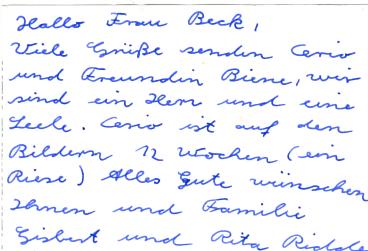 Hallo Frau Beck,
Viele Grüße senden Cerio
und Freundin Biene, wir
sind ein Herr und eine
Seele. Cerio ist auf den
Bildern 12 Wochen (ein
Riese) Alles Gute wünschen
Ihnen und Familie
Gisbert und Rita